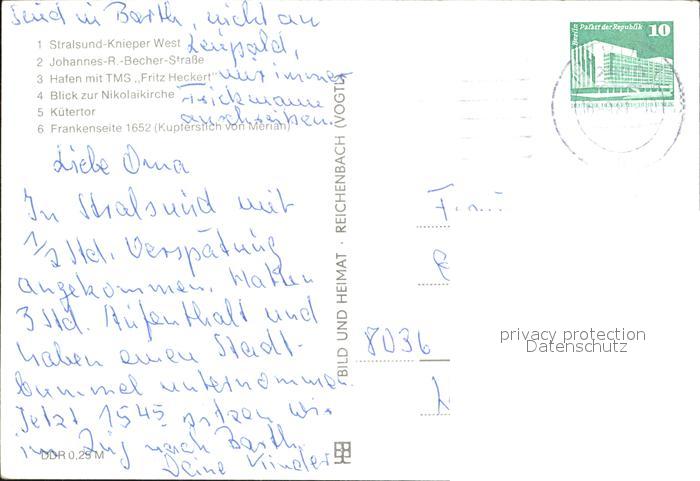 sind in Barth, nicht an
Leupald,
nur immer
Frickmann
anschreiben.
1 Stralsund-Knieper West
2 Johannes-R.-Becher-Straße
3 Hafen mit TMS „Fritz Heckert"
4 Blick zur Nikolaikirche
5 Kütertor
6 Frankenseite 1652 (Kupferstich von Merian)
Liebe Oma
In Stralsund mit
1/2 Std. Verspätung
angekommen. Hatten
3 Std. Aufenthalt und
haben einen Stadt-
bummel unternommen.
Jetzt 15 45 sitzen wir
im Zug nach Barth.
Deine Kinder
DDR 0,25 M
BILD UND HEIMAT · REICHENBACH (VOGTL)
Berlin Palast der Republik
10
8036
privacy protection
Datenschutz